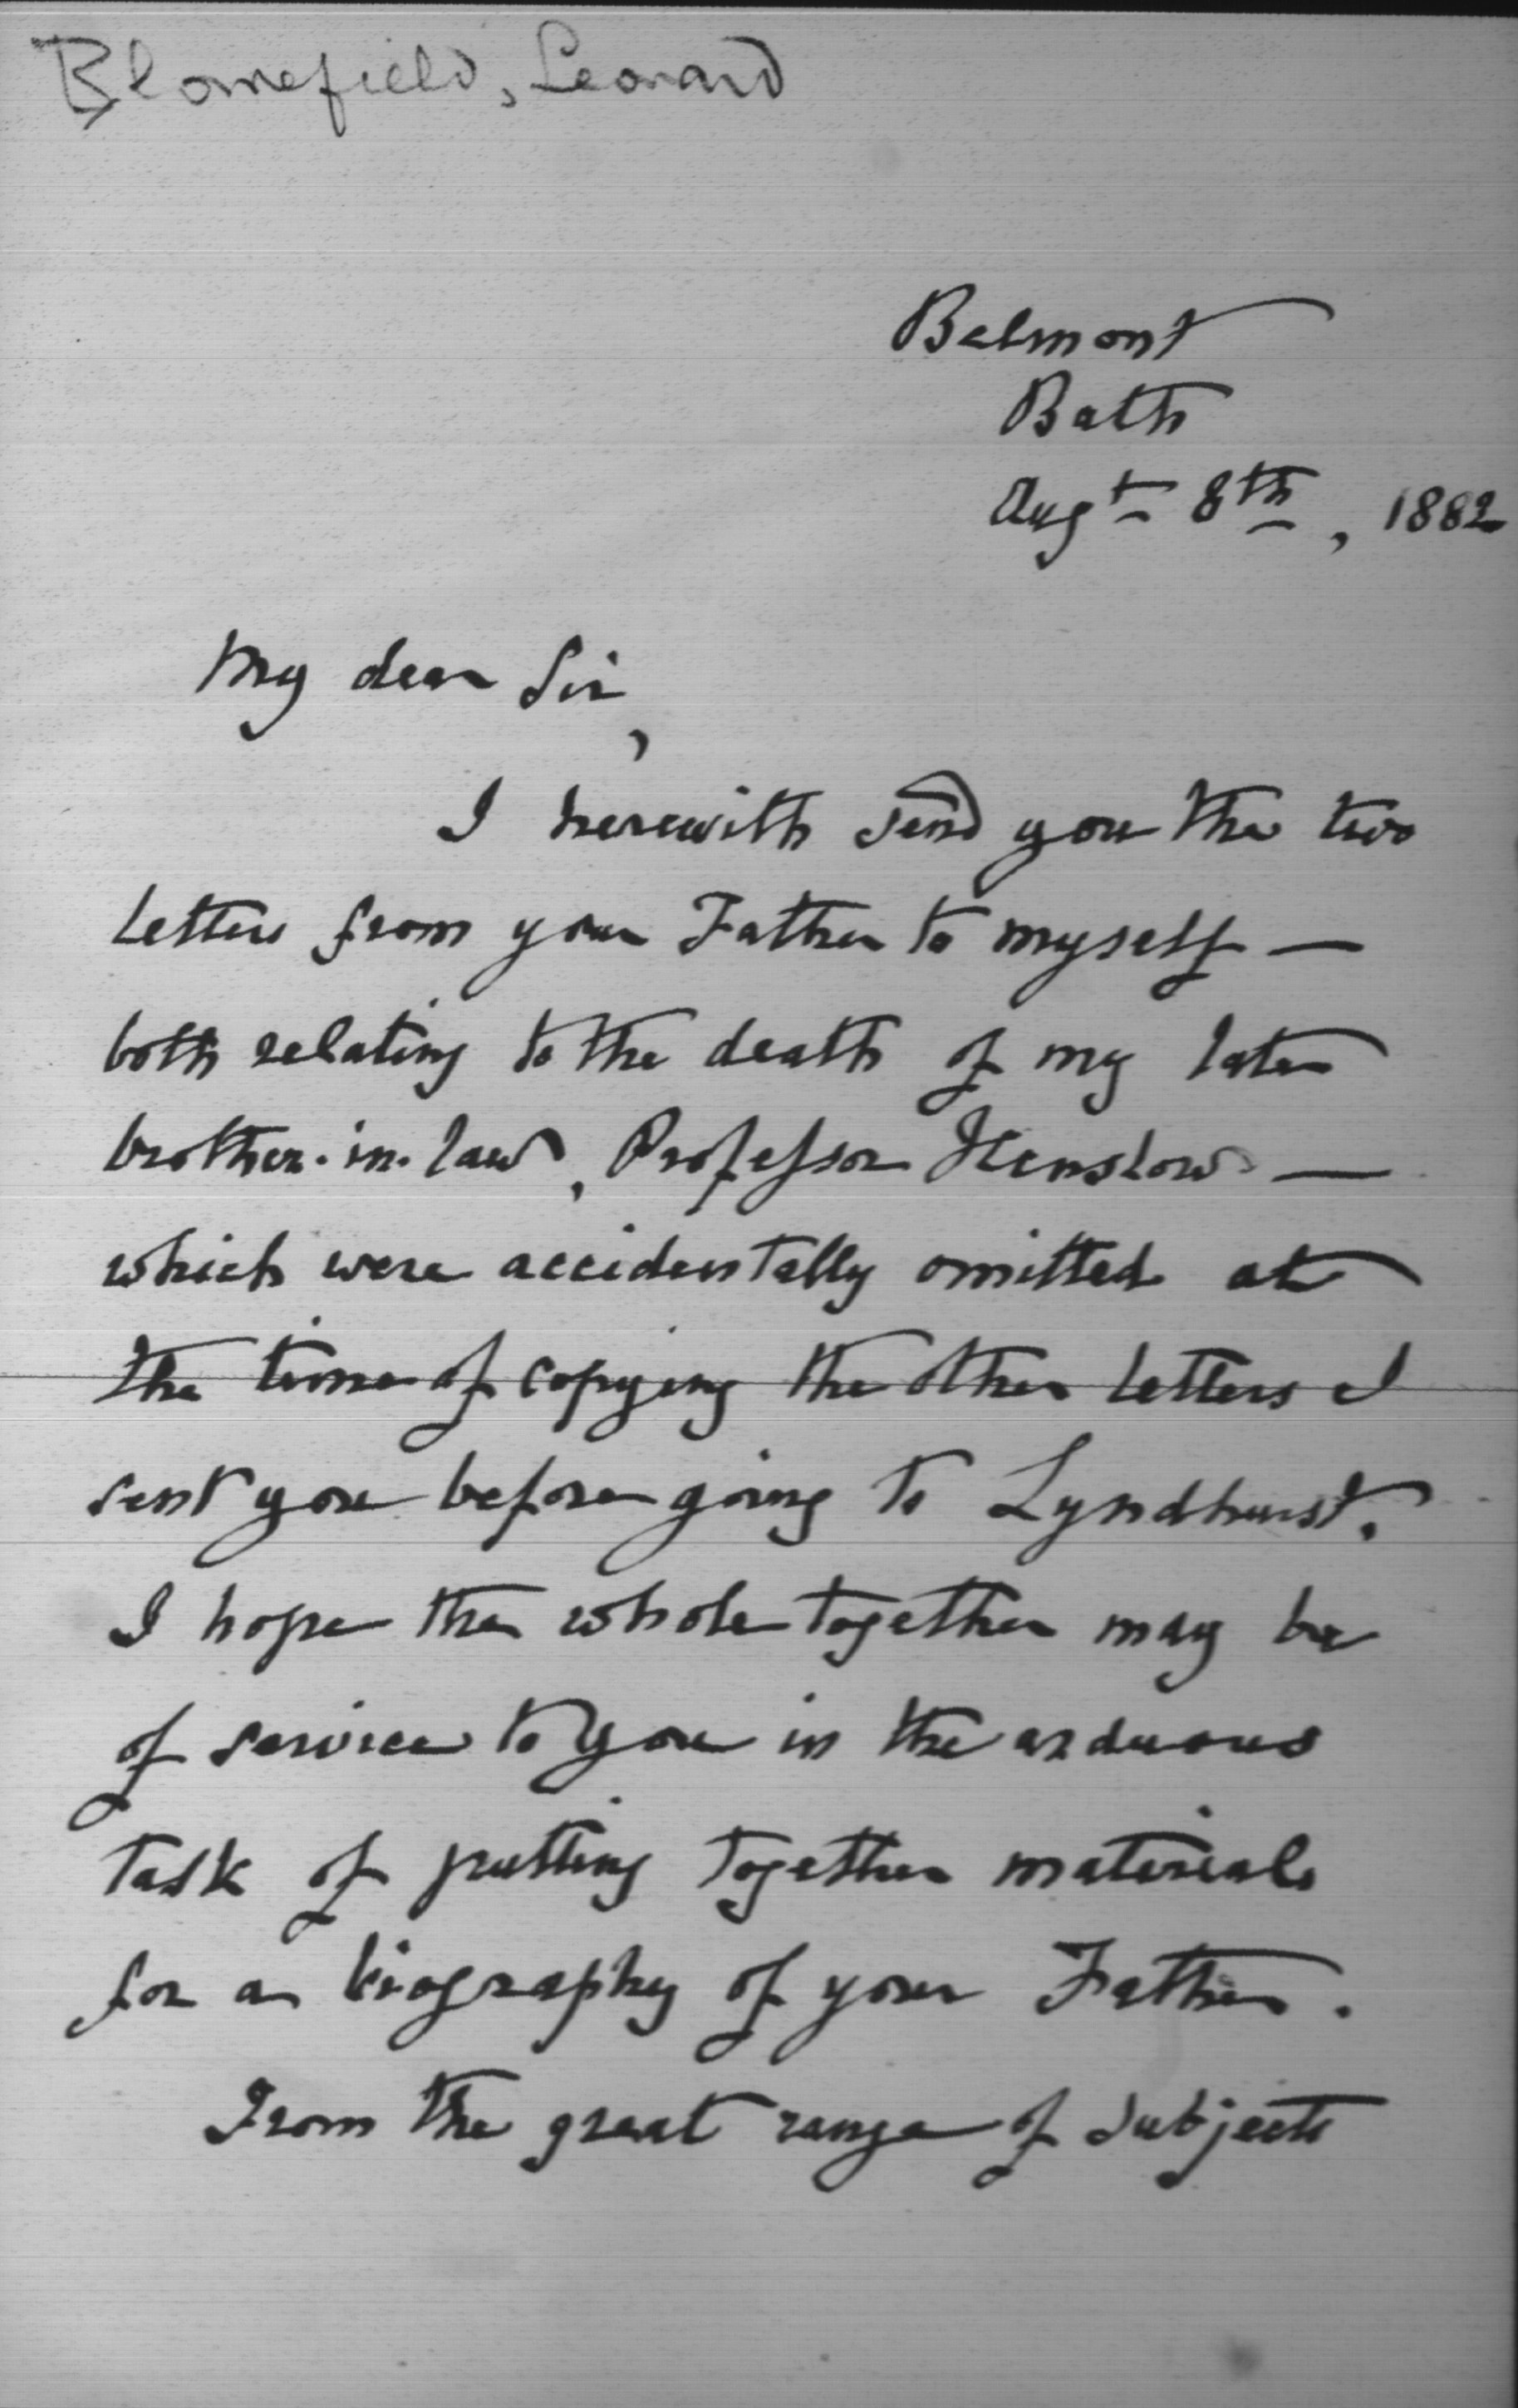 Blomefield, Leonard
Belmont
Bath
Augt 8th, 1882
My dear Sir,
I herewith send you the two
letters from your Father to myself —
both relating to the death of my late
brother-in-law, Professor Henslow —
which were accidentally omitted at
the time of copying the other letters I
sent you before going to Lyndhurst.
I hope the whole together may be
of service to you in the arduous
task of putting together materials
for a biography of your Father.
From the great range of subjects